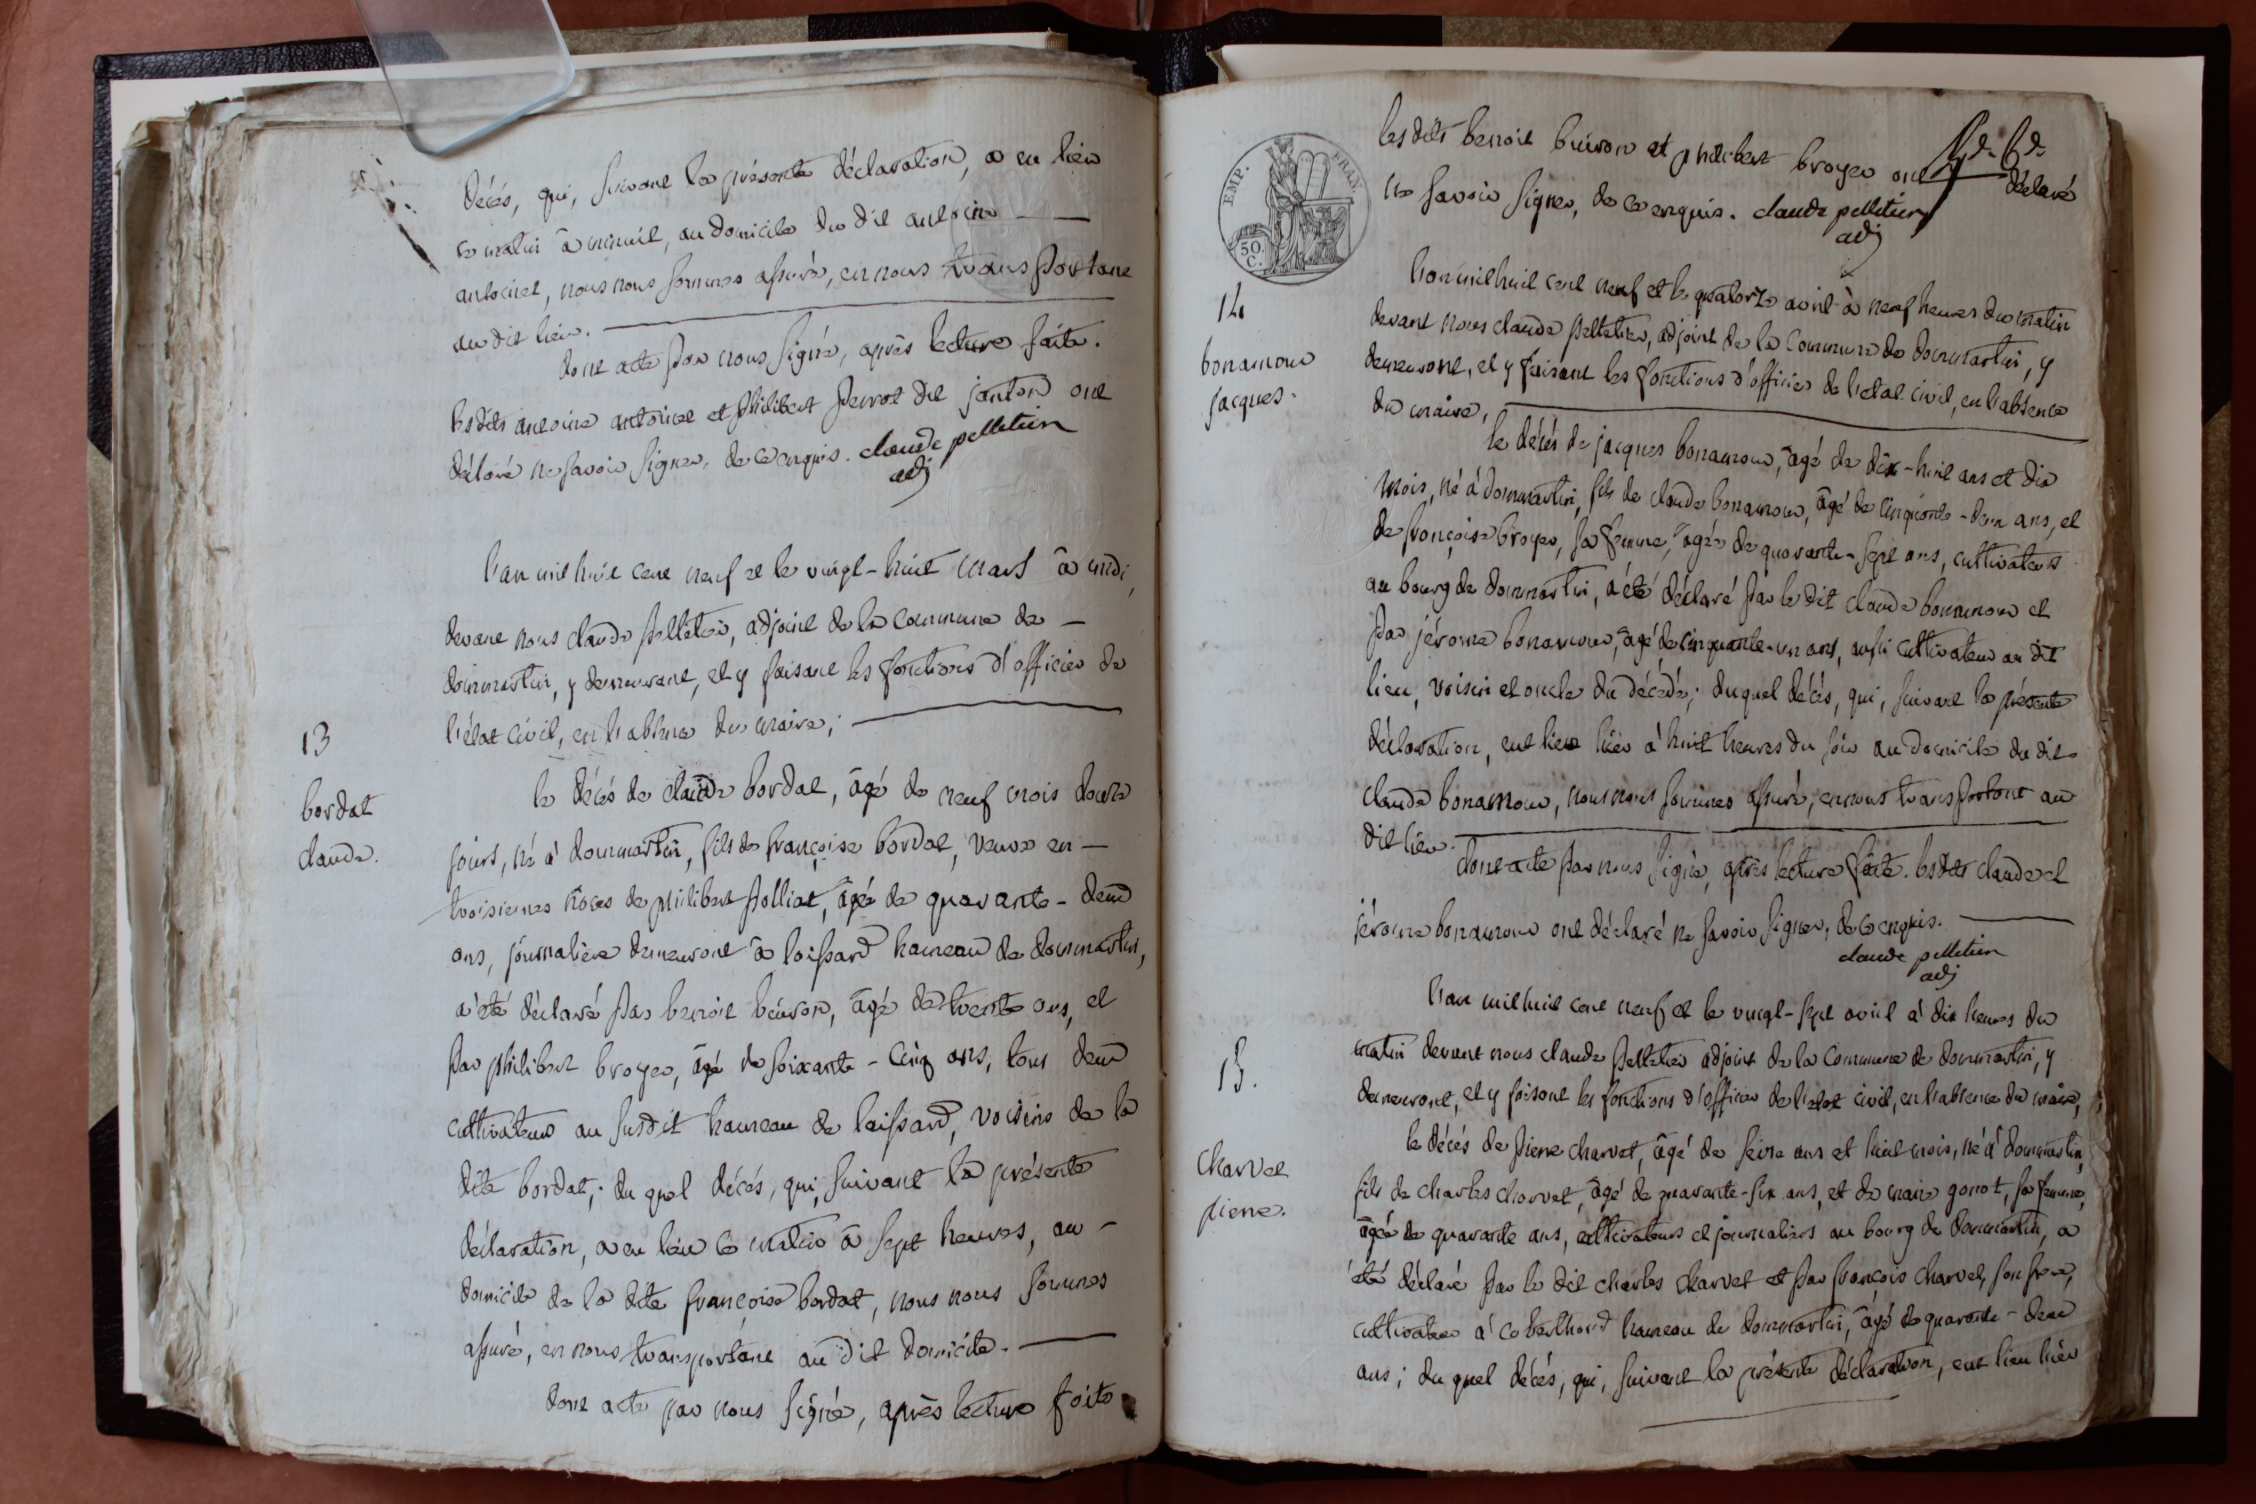 décés, qui, suivant la présente déclaration, a eu lieu
ce matin à minuit, au domicile du dit antoine
antoinet, nous nous sommes assuré, en nous transportant
au dit lieu.
dont acte par nous signé, après lecture faite.
les dits antoine antoinet et philibert perrot dit janton ont
déclaré ne savoir signer, de ce enquis. claude pelletier
adj
l'an mil huit cent neuf et le vingt-huit mars à midi,
devant nous claude pelletier, adjoint de la commune de
dommartin, y demeurant, et y faisant les fonctions d'officier de
l'état civil, en l'absence du maire;
13
bordat
claude.
le décés de claude bordat, âgé de neuf mois douze
jours, né à dommartin, fils de françoise bordat, veuve en
troisiemes nôces de philibert polliat, âgée de quarante-deux
ans, journalière demeurant à loissard hameau de dommartin,
a été déclaré par benoit buiron, âgé de trente ans, et
par philibert broyer, âgé de soixante-cinq ans, tous deux
cultivateurs au susdit hameau de loissard, voisins de la
dite bordat; du quel décés, qui, suivant la présente
déclaration, a eu lieu ce matin à sept heures, au
domicile de la dite françoise bordat, nous nous sommes
assuré, en nous transportant au dit domicile.
dont acte par nous signé, après lecture faite
les dits benoit buiron et philibert broyer ont déclaré
ne savoir signer, de ce enquis. claude pelletier
adj
EMP. FRAN.
50.
C.
14
bonamour
jacques.
l'an mil huit cent neuf et le quatorze avril à neuf heures du matin
devant nous claude pelletier, adjoint de la commune de dommartin, y
demeurant, et y faisant les fonctions d'officier de l'etat civil, en l'absence
du maire,
le décés de jacques bonamour, âgé de dix-huit ans et dix
mois, né à dommartin, fils de claude bonamour, âgé de cinquante-deux ans, et
de françoise broyer, sa femme, âgée de quarante-sept ans, cultivateurs
au bourg de dommartin, a été déclaré par le dit claude bonamour et
par jérome bonamour, âgé de cinquante-un ans, aussi cultivateur au dit
lieu, voisin et oncle du décédé; duquel décés, qui, suivant la présente
déclaration, eut lieu hièr à huit heures du soir au domicile du dit
claude bonamour, nous nous sommes assuré, en nous transportant au
dit lieu.
dont acte par nous signé, après lecture faite. les dits claude et
jérome bonamour ont déclaré ne savoir signer, de ce enquis.
claude pelletier
adj
15.
charvet
pierre.
l'an mil huit cent neuf et le vingt-sept avril à dix heures du
matin devant nous claude pelletier adjoint de la commune de dommartin, y
demeurant, et y faisant les fonctions d'officier de l'etat civil, en l'absence du maire,
le décés de pierre charvet, âgé de seize ans et huit mois, né à dommartin,
fils de charles charvet, âgé de quarante-six ans, et de marie gonot, sa femme,
âgée de quarante ans, cultivateurs et journaliers au bourg de dommartin, a
été déclaré par le dit charles charvet et par françois charvet, son frere,
cultivateur à hameau de dommartin, âgé de quarante-deux
ans; du quel décés, qui, suivant la présente déclaration, eut lieu hièr